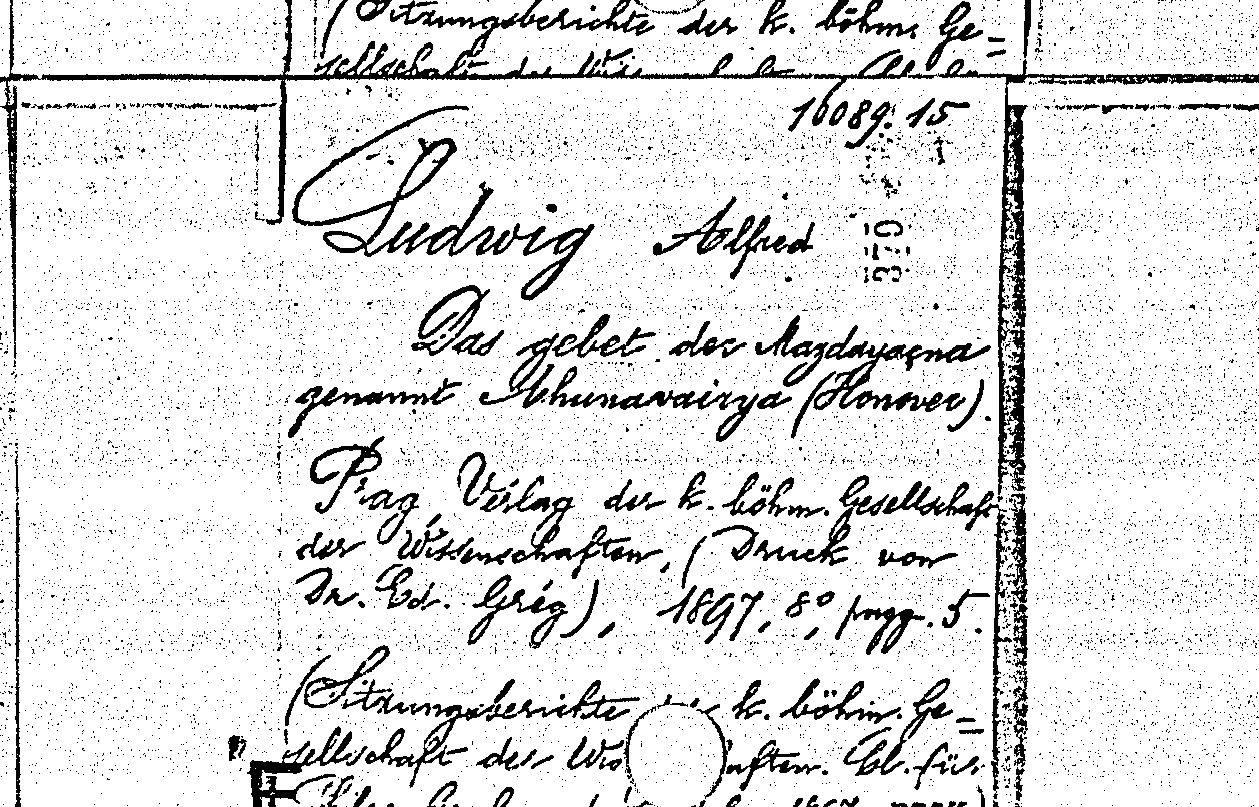 (Sitzungsberichte der k. böhm. Ge=
sellschaft der
16089.15
Ludwig Alfred
379
Das gebet der Mazdayaçna
genannt Ahunavairya (Honover).
Prag, Verlag der k. böhm. Gesellschaft
der Wissenschaften, (Druck von
Dr. Ed. Grég), 1897, 8°, pagg. 5.
(Sitzungsberichte k. böhm. Ge=
sellschaft der Wis aften. Cl. für